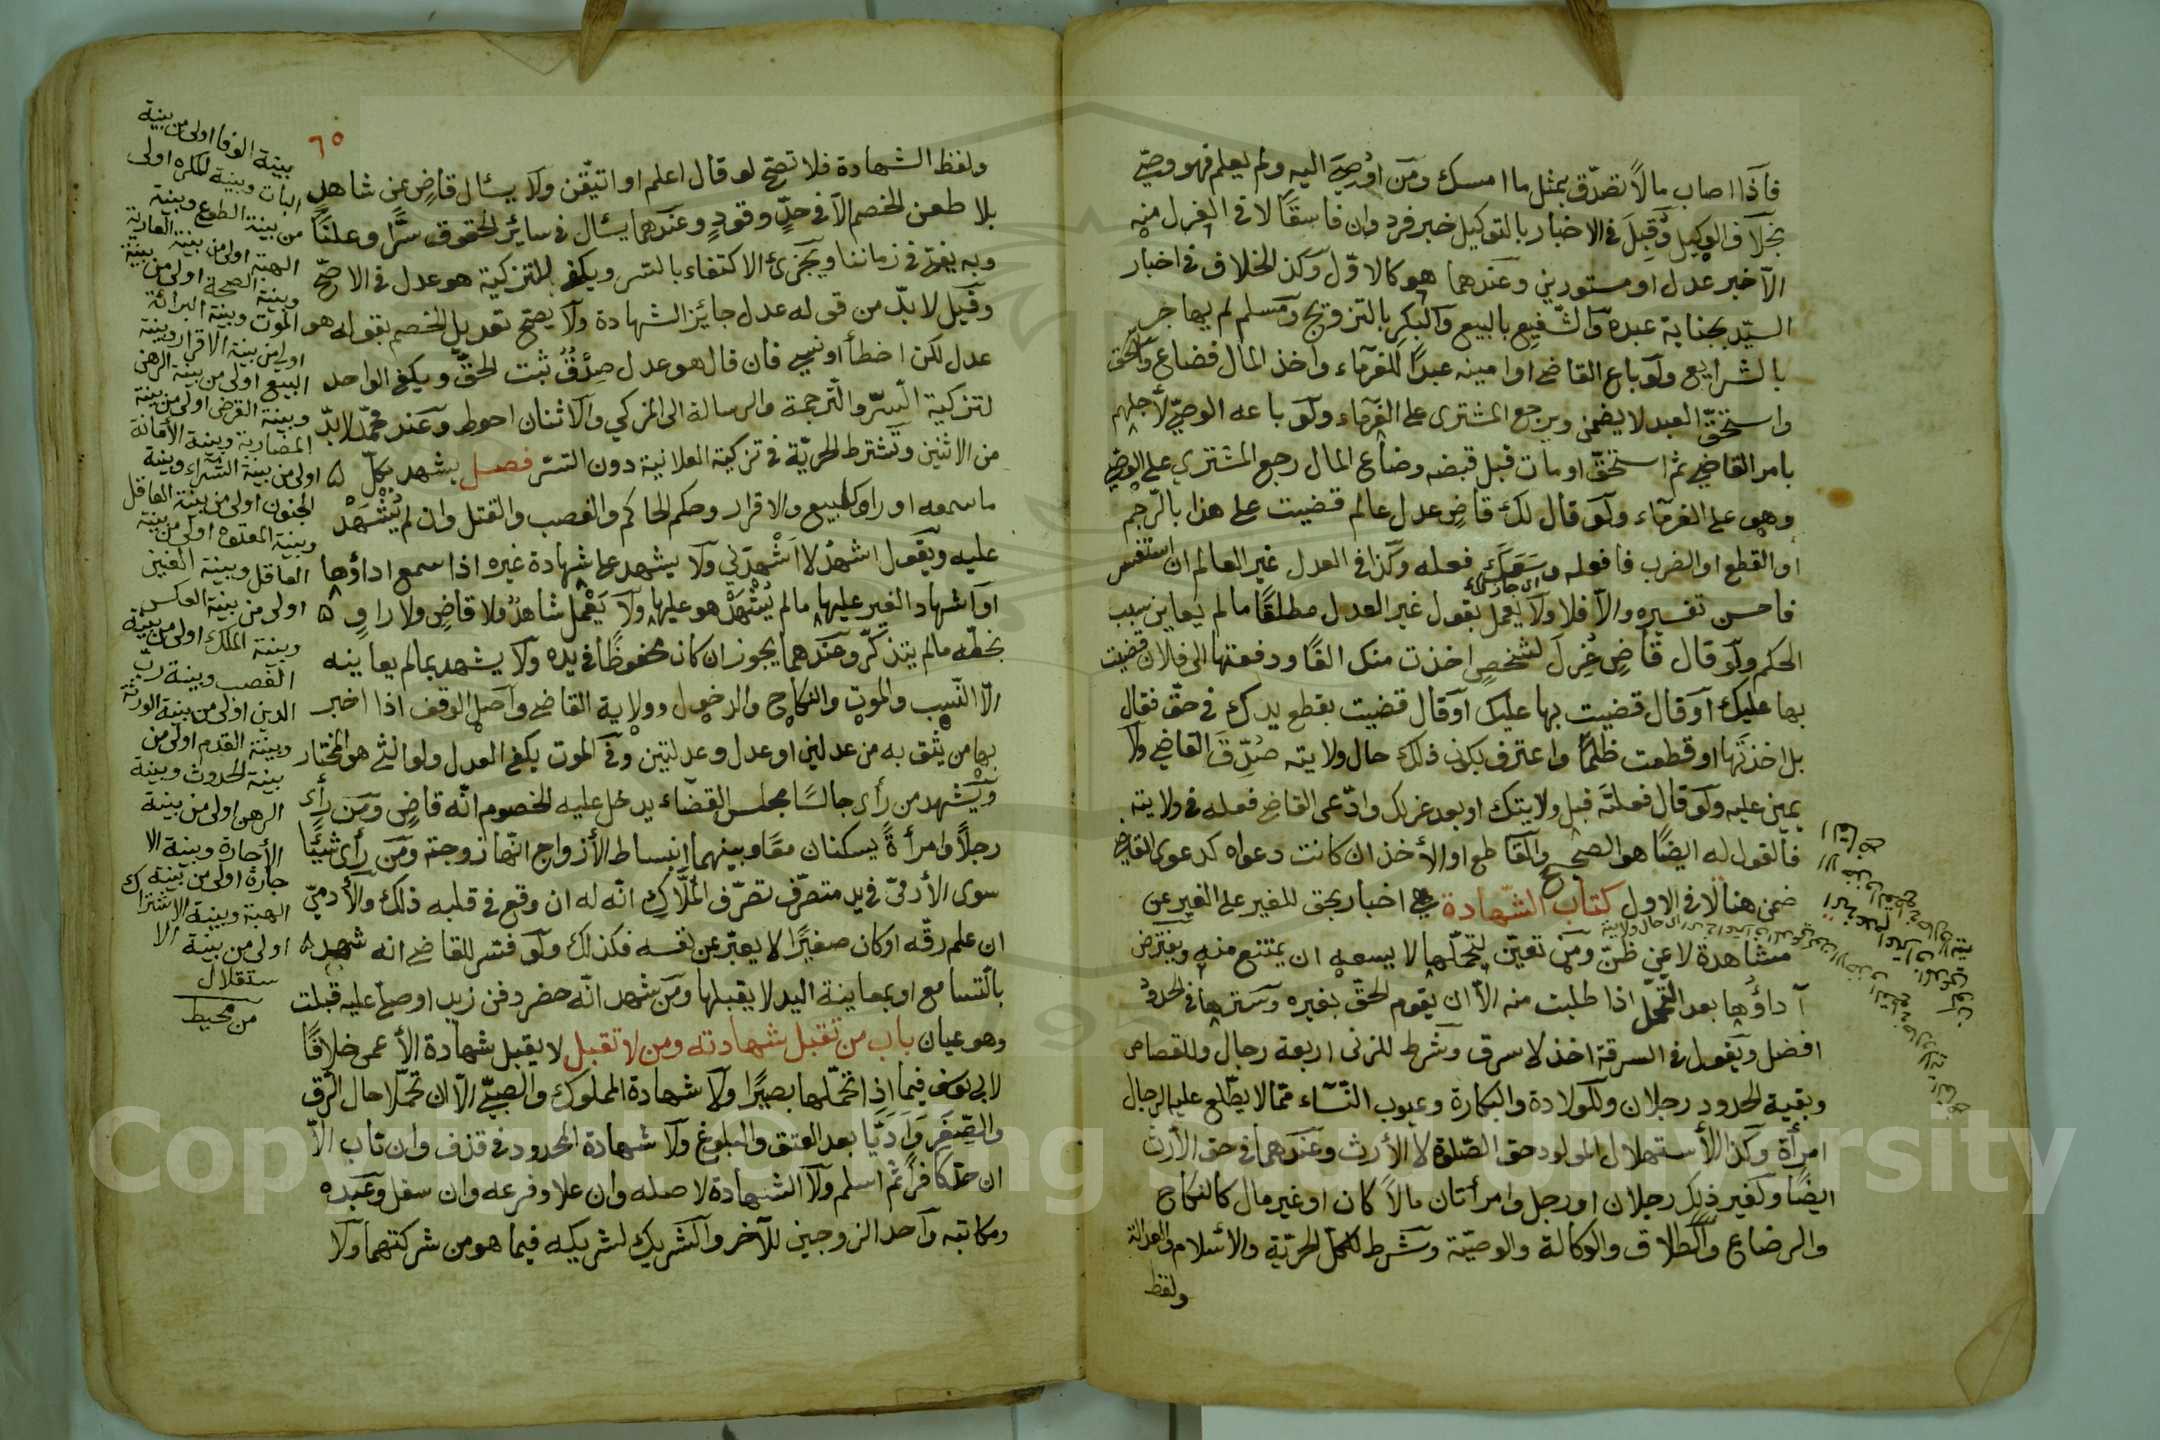 فاذا اصاب مالًا تصدّق بمثل ما امسك ومن اوصى اليه ولم يعلم فهو وصيّ
بخلاف الوكيل وقُبِلَ في الاخبار بالتوكيل خبر فرد وان فاسقًا لا في العزل منه
الّا خبر عدل او مستورين وعندهما هو كالاوّل وكذا الخلاف في اخبار
السيّد بجناية عبده والشّفيع بالبيع والبكر بالتزويج ومسلم لم يهاجر
بالشرايع ولو باع القاضي او امينه عبدًا للغرماء واخذ المال فضاع
واستحقّ العبد لا يضمن ويرجع المشترى على الغرماء ولو باعه الوصيّ لأجلهم
بامر القاضي ثم استحقّ او مات قبل قبضه وضاع المال رجع المشتري على الوصي
وهو على الغرماء ولو قال لك قاضٍ عدل عالم قضيت على هذا بالرّجم
او القطع او الضرب فافعله وسعك فعله وكذا في العدل غير العالم ان استفسر
فاحسن تفسيره والّا فلا ولا يعمل بقول غير العدل مطلقًا ما لم يعاين سبب
الحكم ولو قال قاضٍ عُزِلَ لشخصٍ اخذت منك الفًا ودفعتها الى فلان قضيت
بها عليك او قال قضيت بها عليك او قال قضيت بقطع يدك في حقّ فقال
بل اخذتَها او قطعت ظلمًا واعترف بكون ذلك حال ولايته صُدِّقَ القاضي ولا
يمين عليه ولو قال فعلتَه قبل ولايتك او بعد عزلك وادّعى القاضي فعله في ولايته
فالقول له ايضًا هو الصحيح والقاطع او الأخذ ان كانت دعواه كدعوى القاضي
ضمن هنا لا في الاول كتاب الشّهادة هي اخبار بحق للغير على الغير عن
مشاهدة لا عن ظنّ ومن تعيّن لتحمّلها لا يسعه ان يمتنع منه ويفترض
آداؤها بعد التّحمّل اذا طلبت منه الّا ان يقوم الحقّ بغيره وسترها في الحدود
افضل ويقول في السرقة اخذ لا سرق وشرط للزنى اربعة رجال وللقصاص
وبقية الحدود رجلان وللولادة والبكارة وعيوب النّساء ممّا لا يطّلع عليه الرجال
امرأة وكذا الأستهلال المولود حق الصّلوة لا الأرث وعندهما في حق الأرث
ايضًا ولغير ذلك رجلان او رجل وامرأتان مالًا كان او غير مال كالنكاح
والرضاع والطلاق والوكالة والوصيّة وشرط للكلّ الحريّة والأسلام والعدالة
ولفظ
٦٥
ولفظ الشهادة فلا تصحّ لو قال اعلم او اتيقّن ولا يسئال قاضٍ عن شاهدٍ
بلا طعن الخصم الّا في حدٍّ وقودٍ وعندهما يسئال في سائر الحقوق سرًّا وعلنًا
وبه يفتى في زماننا ويجزئ الاكتفاء بالسر ويكفي للتزكية هو عدل في الاصحّ
وقيل لا بدّ من قوله عدل جايز الشهادة ولا يصحّ تعديل الخصم بقوله هو
عدل لكن اخطأ او نسي فان قال هو عدل صدق ثبت الحقّ ويكفي الواحد
لتزكية السرّ والترجمة والرسالة الى المزكي والاثنان احوط وعند محمّد لا بدّ
من الاثنين وتشترط الحريّة في تزكية العلانية دون السّر فصل يشهد بكلّ
ما سمعه او راى كالبيع والاقرار وحكم الحاكم والغصب والقتل وان لم يُشْهَدْ
عليه ويقول اشهدُ لا اَشْهَدَني ولا يشهد على شهادة غيره اذا سمع اداؤها
او اشهاد الغير عليها ما لم يُشْهَدْ هو عليها ولا يَعْمل شاهدٌ ولا قاضٍ ولا راوٍ
بخطّه ما لم يتذكّر وعندهما يجوز ان كان محفوظًا في يده ولا يشهد بما لم يعاينه
الّا النّسب والموت والنكاح والدخول وولاية القاضي واصل الوقف اذا اخبر
بها من يثق به من عدلين او عدل وعدلتين وفي الموت يكفي العدل ولو انثى هو المختار
ويشهد من رأى جالسًا مجلس القضاء يدخل عليه الخصوم انّه قاضٍ ومن رأى
رجلًا وامرأةً يسكنان معًا وبينهما انبساط الأزواج انّها زوجته ومن رأى شيئًا
سوى الأدميّ في يد متصرّف تصرّف المُلّاك انّه له ان وقع في قلبه ذلك والأدميّ
ان علم رقّه او كان صغيرًا لا يعبّر عن نفسه فكذلك ولو فسّر للقاضي انه شهد
بالتسامع او بمعاينة اليد لا يقبلها ومن شهد انّه حضر دفن زيد او صلى عليه قبلت
وهو عيان باب من تقبل شهادته ومن لا تقبل لا يقبل شهادة الأعمى خلافًا
لابي يوسف فيما اذا تحمّلها بصيرًا ولا شهادة المملوك والصبيّ الّا ان تحمّلا حال الرّق
والصِّغَرِ وَادَّيَا بعد العتق والبلوغ ولا شهادة المحدود في قذف وان تاب الّا
ان حدّ كافرًا ثم اسلم ولا الشهادة لاصله وان علا وفرعه وان سفل وعبده
ومكاتبه واحد الزوجين للآخر والشريك لشريكه فيما هو من شركتهما ولا
بينة الوفا اولى من بينة
البات وبينة المكره اولى
من بينة الطوع وبينة
الهبة اولى من بينة العارية
وبينة الصحة اولى من بينة
الموت وبينة البرائة
اولى من بينة الاقرار وبينة
البيع اولى من بينة الرهن
وبينة القرض اولى من بينة
المضاربة وبينة الأمانة
اولى من بينة الشراء وبينة
الجنون اولى من بينة العاقل
وبينة المعتوه اولى من بينة
العاقل وبينة الغبن
اولى من بينة العكس
وبينة الملك اولى من بينة
الغصب وبينة ربّ
الدين اولى من بينة الورثة
وبينة القدم اولى من
بينة الحدوث وبينة
الرهن اولى من بينة
الأجارة وبينة الا
جارة اولى من بينة
الهبة وبينة الاشتراك
اولى من بينة الا
ستقلال
من محيط
Copyright © King Saud University